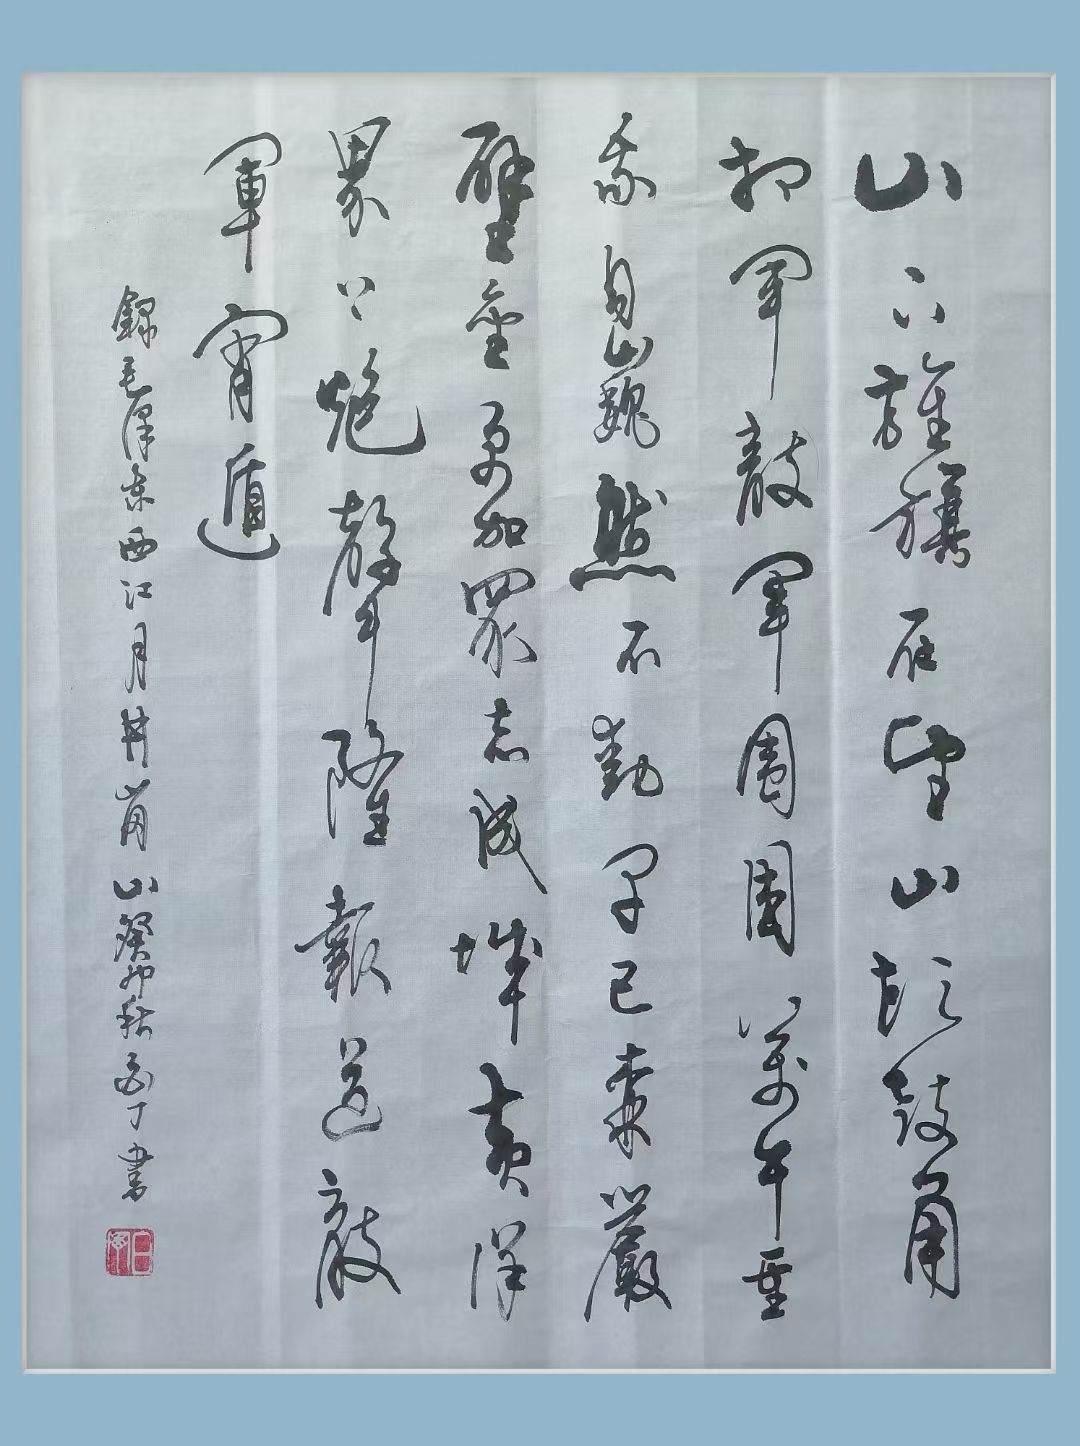 山下旌旗在望山頭鼓角
相聞敵軍围困萬千重
我自巍然不動早已森嚴
壁壘更加眾志成城黄洋
界上炮聲隆報道敵
軍宵遁
錄毛澤东西江月井岡山癸卯秋白丁書